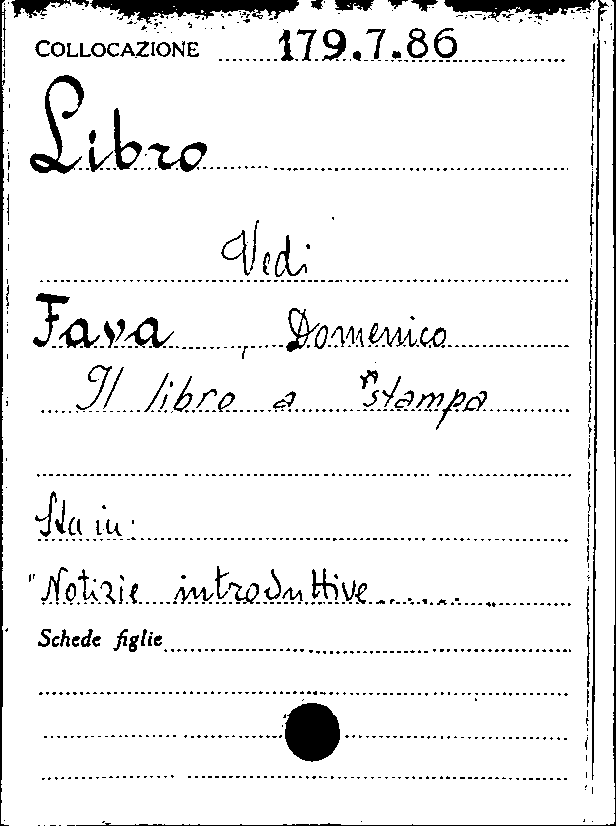 COLLOCAZIONE 179.7.86
Libro
Vedi
Fava, Domenico
Il libro a stampa
Sta in:
"Notizie introduttive......"
Schede figlie